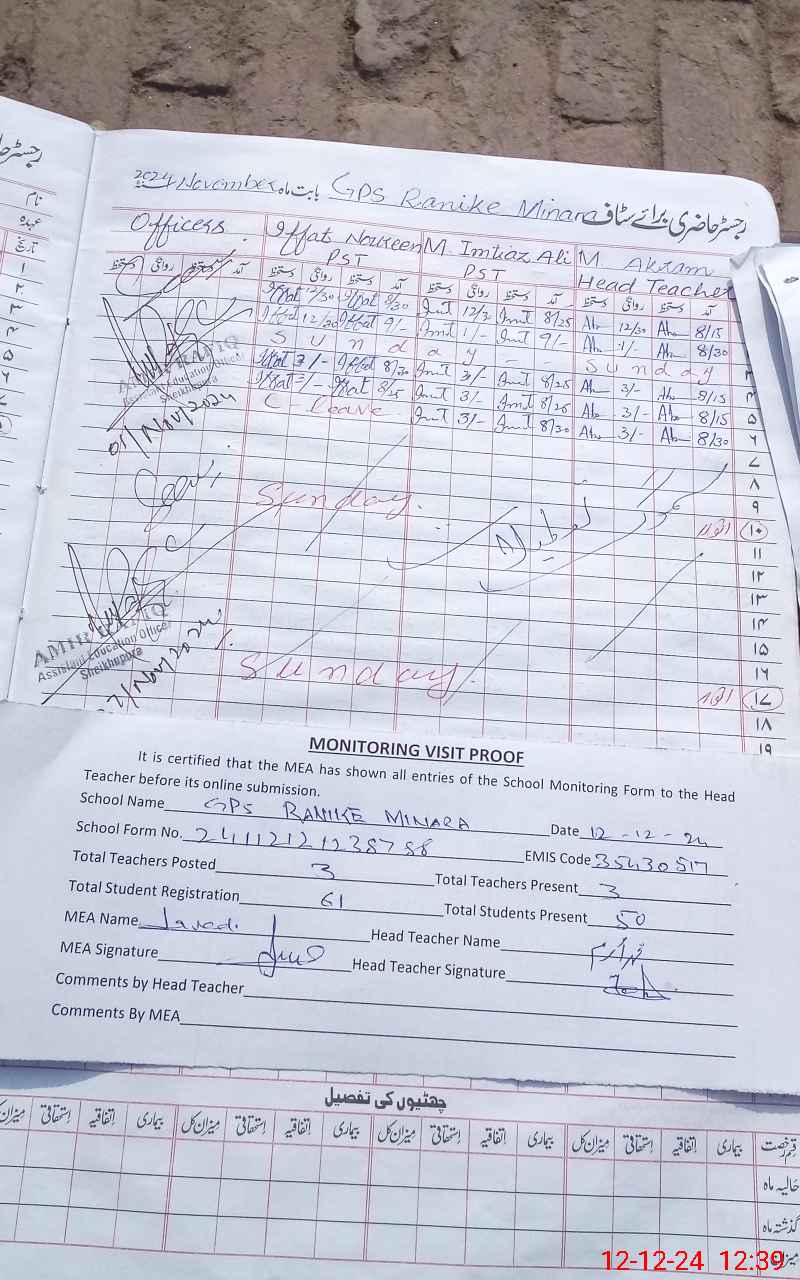 رجسٹر حاضری برائے سٹاف GPS Ranike Minara بابت ماہ November 2024
Officers. Iffat Noureen M. Imtiaz Ali M. Akram
PST PST Head Teacher
دستخط روانگی دستخط آمد دستخط روانگی دستخط آمد دستخط روانگی دستخط آمد دستخط روانگی دستخط آمد
Iffat 12/30 Iffat 8/30 Imt 12/30 Imt 8/25 Ak 12/30 Ak 8/15
Iffat 12/30 Iffat 9/- Imt 1/- Imt 9/- Ak 1/- Ak 8/30
Sunday - - Sunday ۳
Iffat 3/- Iffat 8/30 Imt 3/- Imt 8/25 Ak 3/- Ak 8/15 ۴
Iffat 3/- Iffat 8/25 Imt 3/- Imt 8/25 Ak 3/- Ak 8/15 ۵
C - Leave Imt 3/- Imt 8/30 Ak 3/- Ak 8/30 ۶
Assistant Education Officer
Sheikhupura
05/Nov/2024
۷
۸
۹
Sunday. اتوار ۱۰
۱۱
۱۲
۱۳
۱۴
۱۵
AMIR RAFIQ
Assistant Education Officer
Sheikhupura
۱۶
Sunday. اتوار ۱۷
۱۸
۱۹
MONITORING VISIT PROOF
It is certified that the MEA has shown all entries of the School Monitoring Form to the Head
Teacher before its online submission.
School Name GPS RANIKE MINARA Date 12-12-24
School Form No. 24111212138788 EMIS Code 35430517
Total Teachers Posted 3 Total Teachers Present 3
Total Student Registration 61 Total Students Present 50
MEA Name Javed. Head Teacher Name محمد اکرم
MEA Signature Head Teacher Signature
Comments by Head Teacher
Comments By MEA
چھٹیوں کی تفصیل
قسم رخصت بیماری اتفاقیہ استحقاقی میزان کل بیماری اتفاقیہ استحقاقی میزان کل بیماری اتفاقیہ استحقاقی میزان کل بیماری اتفاقیہ استحقاقی میزان کل
حالیہ ماہ
گذشتہ ماہ
12-12-24 12:39